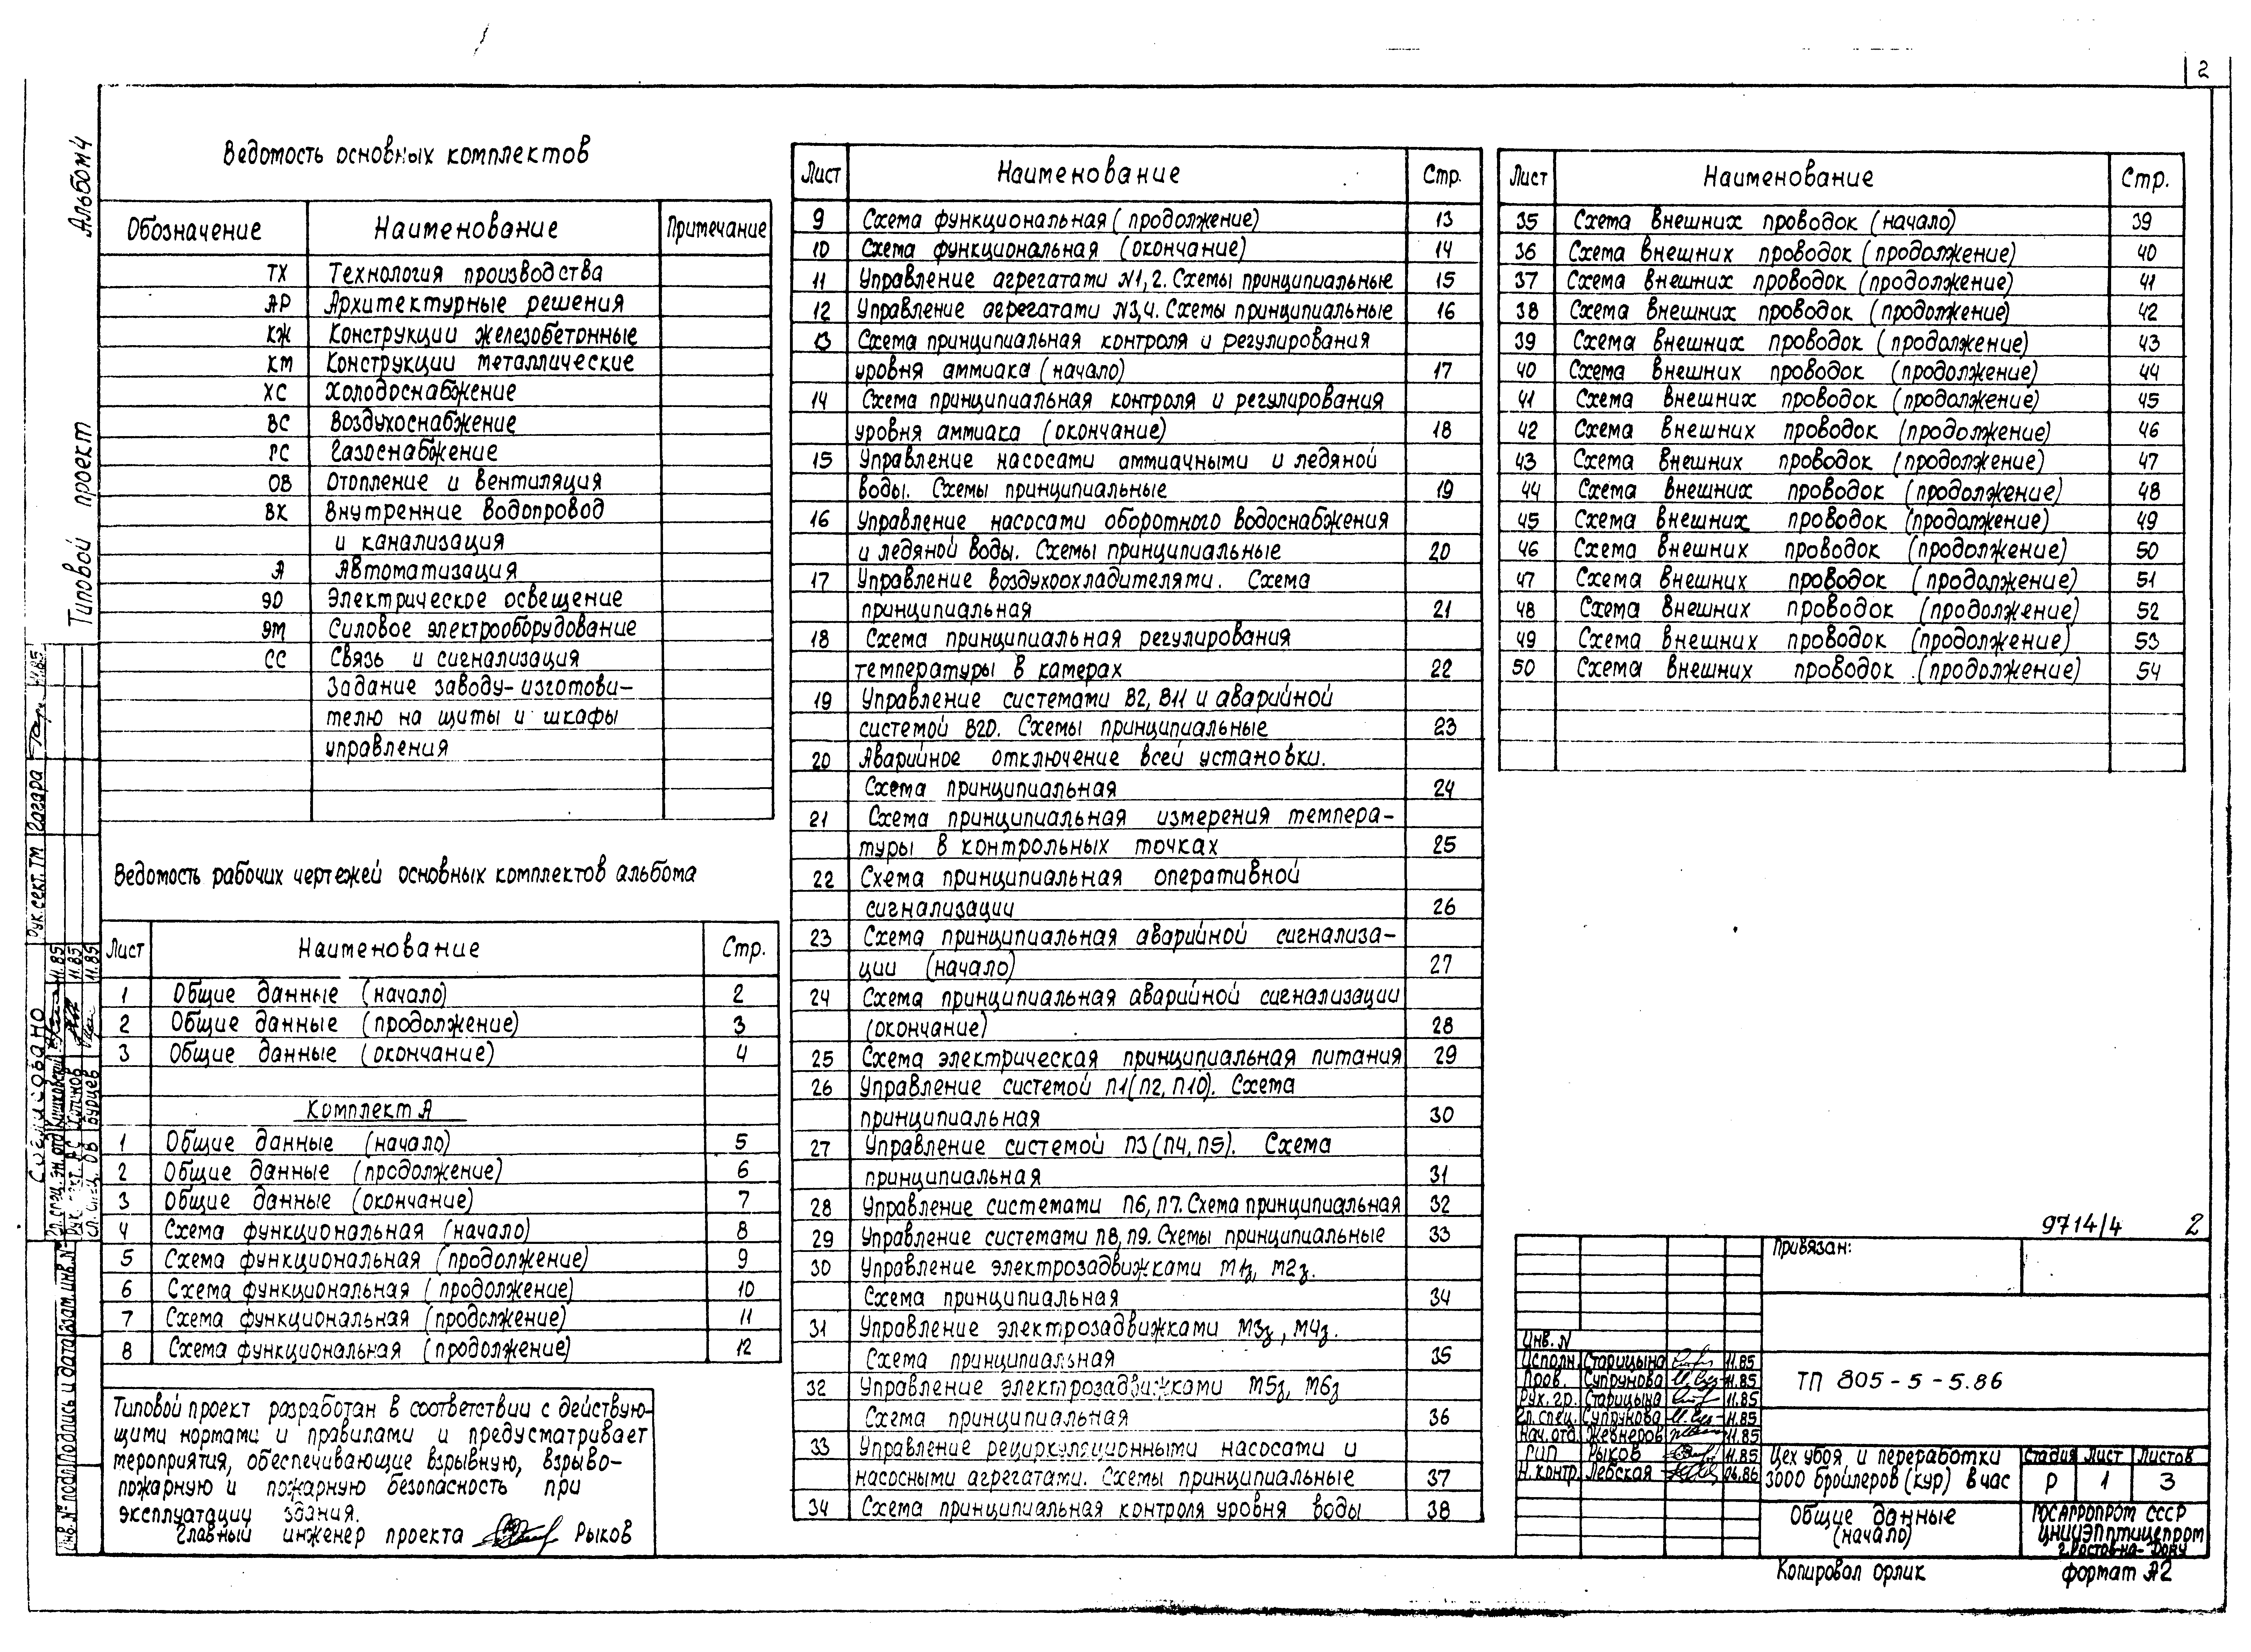 2
Альбом 4
Типовой проект
Ведомость основных комплектов
Обозначение Наименование Примечание
ТХ Технология производства
АР Архитектурные решения
КЖ Конструкции железобетонные
КМ Конструкции металлические
ХС Холодоснабжение
ВС Воздухоснабжение
ГС Газоснабжение
ОВ Отопление и вентиляция
ВК Внутренние водопровод
и канализация
А Автоматизация
ЭО Электрическое освещение
ЭМ Силовое электрооборудование
СС Связь и сигнализация
Задание заводу-изготови-
телю на щиты и шкафы
управления
Ведомость рабочих чертежей основных комплектов альбома
Лист Наименование Стр.
1 Общие данные (начало) 2
2 Общие данные (продолжение) 3
3 Общие данные (окончание) 4
Комплект А
1 Общие данные (начало) 5
2 Общие данные (продолжение) 6
3 Общие данные (окончание) 7
4 Схема функциональная (начало) 8
5 Схема функциональная (продолжение) 9
6 Схема функциональная (продолжение) 10
7 Схема функциональная (продолжение) 11
8 Схема функциональная (продолжение) 12
Типовой проект разработан в соответствии с действую-
щими нормами и правилами и предусматривает
мероприятия, обеспечивающие взрывную, взрыво-
пожарную и пожарную безопасность при
эксплуатации здания.
Главный инженер проекта Рыков
Лист Наименование Стр.
9 Схема функциональная (продолжение) 13
10 Схема функциональная (окончание) 14
11 Управление агрегатами N1, 2. Схемы принципиальные 15
12 Управление агрегатами N3,4. Схемы принципиальные 16
13 Схема принципиальная контроля и регулирования
уровня аммиака (начало) 17
14 Схема принципиальная контроля и регулирования
уровня аммиака (окончание) 18
15 Управление насосами аммиачными и ледяной
воды. Схемы принципиальные 19
16 Управление насосами оборотного водоснабжения
и ледяной воды. Схемы принципиальные 20
17 Управление воздухоохладителями. Схема
принципиальная 21
18 Схема принципиальная регулирования
температуры в камерах 22
19 Управление системами В2, В11 и аварийной
системой В20. Схемы принципиальные 23
20 Аварийное отключение всей установки.
Схема принципиальная 24
21 Схема принципиальная измерения темпера-
туры в контрольных точках 25
22 Схема принципиальная оперативной
сигнализации 26
23 Схема принципиальная аварийной сигнализа-
ции (начало) 27
24 Схема принципиальная аварийной сигнализации
(окончание) 28
25 Схема электрическая принципиальная питания 29
26 Управление системой П1(П2, П10). Схема
принципиальная 30
27 Управление системой П3 (П4, П5). Схема
принципиальная 31
28 Управление системами П6, П7. Схема принципиальная 32
29 Управление системами П8, П9. Схемы принципиальные 33
30 Управление электрозадвижками М1з, М2з.
Схема принципиальная 34
31 Управление электрозадвижками М3з, М4з.
Схема принципиальная 35
32 Управление электрозадвижками М5з, М6з
Схема принципиальная 36
33 Управление рециркуляционными насосами и
насосными агрегатами. Схемы принципиальные 37
34 Схема принципиальная контроля уровня воды 38
Лист Наименование Стр.
35 Схема внешних проводок (начало) 39
36 Схема внешних проводок (продолжение) 40
37 Схема внешних проводок (продолжение) 41
38 Схема внешних проводок (продолжение) 42
39 Схема внешних проводок (продолжение) 43
40 Схема внешних проводок (продолжение) 44
41 Схема внешних проводок (продолжение) 45
42 Схема внешних проводок (продолжение) 46
43 Схема внешних проводок (продолжение) 47
44 Схема внешних проводок (продолжение) 48
45 Схема внешних проводок (продолжение) 49
46 Схема внешних проводок (продолжение) 50
47 Схема внешних проводок (продолжение) 51
48 Схема внешних проводок (продолжение) 52
49 Схема внешних проводок (продолжение) 53
50 Схема внешних проводок (продолжение) 54
9714/4 2
Привязан:
Инв. N
Исполн. Старицына 11.85
Пров. Супрунова 11.85
Рук. гр. Старицына 11.85
Гл. спец. Супрунова 11.85
Нач. отд. Жевнеров 11.85
ГИП Рыков 11.85
Н. контр. Лебская 06.86
ТП 805-5-5.86
Цех убоя и переработки
3000 бройлеров (кур) в час
Стадия Лист Листов
Р 1 3
Общие данные
(начало)
Госагропром СССР
ЦНИИЭПптицепром
г. Ростов-на-Дону
Копировал Орлик формат А2
Согласовано
Рук. сект. ТМ Гагара 11.85
Гл. спец. эл. отд. 11.85
11.85
Гл. спец. ОВ Бурцев 11.85
Инв. № подл. Подпись и дата Взам. инв. №